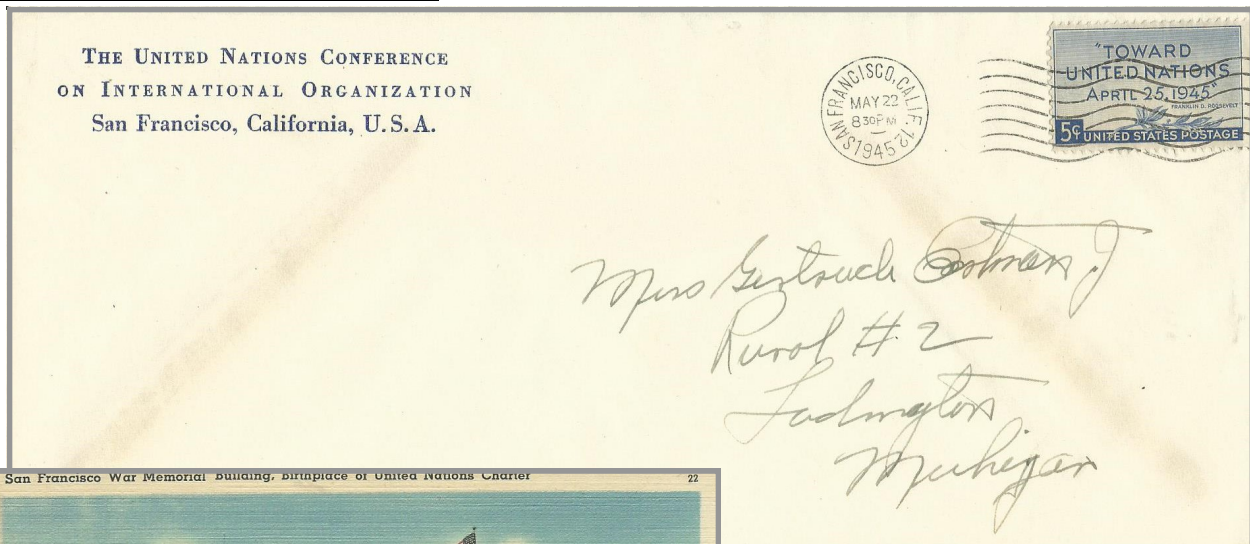 THE UNITED NATIONS CONFERENCE
ON INTERNATIONAL ORGANIZATION
San Francisco, California, U.S.A.
SAN FRANCISCO, CALIF. 12
MAY 22
8 30 PM
1945
"TOWARD
UNITED NATIONS
APRIL 25, 1945"
FRANKLIN D. ROOSEVELT
5¢ UNITED STATES POSTAGE
Miss Gertrude
Rural # 2
Ludington
Michigan
San Francisco War Memorial Building, Birthplace of United Nations Charter 22